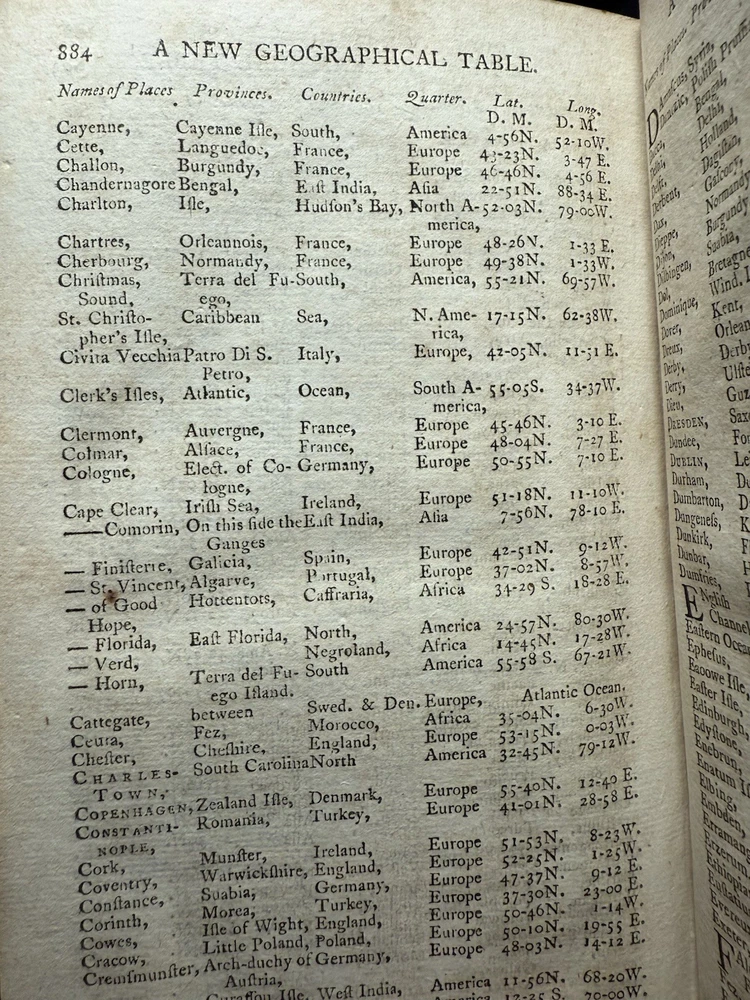 884 A NEW GEOGRAPHICAL TABLE.
Names of Places Provinces. Countries. Quarter. Lat. Long.
D. M. D. M.
Cayenne, Cayenne Iſle, South, America 4-56N. 52-10W.
Cette, Languedoc, France, Europe 43-23N. 3-47 E.
Challon, Burgundy, France, Europe 46-46N. 4-56 E.
Chandernagore Bengal, Eaſt India, Aſia 22-51N. 88-34 E.
Charlton, Iſle, Hudſon's Bay, North A- 52-03N. 79-00W.
merica,
Chartres, Orleannois, France, Europe 48-26N. 1-33 E.
Cherbourg, Normandy, France, Europe 49-38N. 1-33W.
Chriſtmas, Terra del Fu- South, America, 55-21N. 69-57W.
Sound, ego,
St. Chriſto- Caribbean Sea, N. Ame- 17-15N. 62-38W.
pher's Iſle, rica,
Civita Vecchia Patro Di S. Italy, Europe, 42-05N. 11-51 E.
Petro,
Clerk's Iſles, Atlantic, Ocean, South A- 55-05S. 34-37W.
merica,
Clermont, Auvergne, France, Europe 45-46N. 3-10 E.
Colmar, Alſace, France, Europe 48-04N. 7-27 E.
Cologne, Elect. of Co- Germany, Europe 50-55N. 7-10 E.
logne,
Cape Clear, Iriſh Sea, Ireland, Europe 51-18N. 11-10W.
—Comorin, On this ſide the Eaſt India, Aſia 7-56N. 78-10 E.
Ganges
— Finiſterre, Galicia, Spain, Europe 42-51N. 9-12W.
— St. Vincent, Algarve, Portugal, Europe 37-02N. 8-57W.
— of Good Hottentots, Caffraria, Africa 34-29 S. 18-28 E.
Hope,
— Florida, Eaſt Florida, North, America 24-57N. 80-30W.
— Verd, Negroland, Africa 14-45N. 17-28W.
— Horn, Terra del Fu- South America 55-58 S. 67-21W.
ego Iſland.
Cattegate, between Swed. & Den. Europe, Atlantic Ocean.
Ceuta, Fez, Morocco, Africa 35-04N. 6-30W.
Cheſter, Cheſhire, England, Europe 53-15N. 0-03W.
CHARLES- South Carolina North America 32-45N. 79-12W.
TOWN,
COPENHAGEN, Zealand Iſle, Denmark, Europe 55-40N. 12-40 E.
CONSTANTI- Romania, Turkey, Europe 41-01N. 28-58 E.
NOPLE,
Cork, Munſter, Ireland, Europe 51-53N. 8-23W.
Coventry, Warwickſhire, England, Europe 52-25N. 1-25W.
Conſtance, Suabia, Germany, Europe 47-37N. 9-12 E.
Corinth, Morea, Turkey, Europe 37-30N. 23-00 E.
Cowes, Iſle of Wight, England, Europe 50-46N. 1-14W.
Cracow, Little Poland, Poland, Europe 50-10N. 19-55 E.
Cremſmunſter, Arch-duchy of Germany, Europe 48-03N. 14-12 E.
Auſtria,
Curaſſou Iſle, Weſt India, America 11-56N. 68-20W.
Holland,
Dagiſtan,
Gaſcony,
Normandy
Burgundy
Suabia,
Bretagne
Dominique, Wind.
Dover, Kent,
Dreux, Orlean
Derby, Derby
Derry, Ulſte
Dieu, Guz
DRESDEN, Saxo
Dundee, Fo
DUBLIN, Le
Durham, Du
Dumbarton, D
Dungeneſs, K
Dunkirk,
Dunbar,
Dumfries,
ENgliſh
Channel
Eaſtern Ocea
Epheſus,
Eaoowe Iſle,
Eaſter Iſle,
Edinburgh,
Edyſtone,
Enebrun,
Enatum I
Elbing,
Embden,
Erramang
Erzerum
Ethiopia
Euſtatia
Exeter